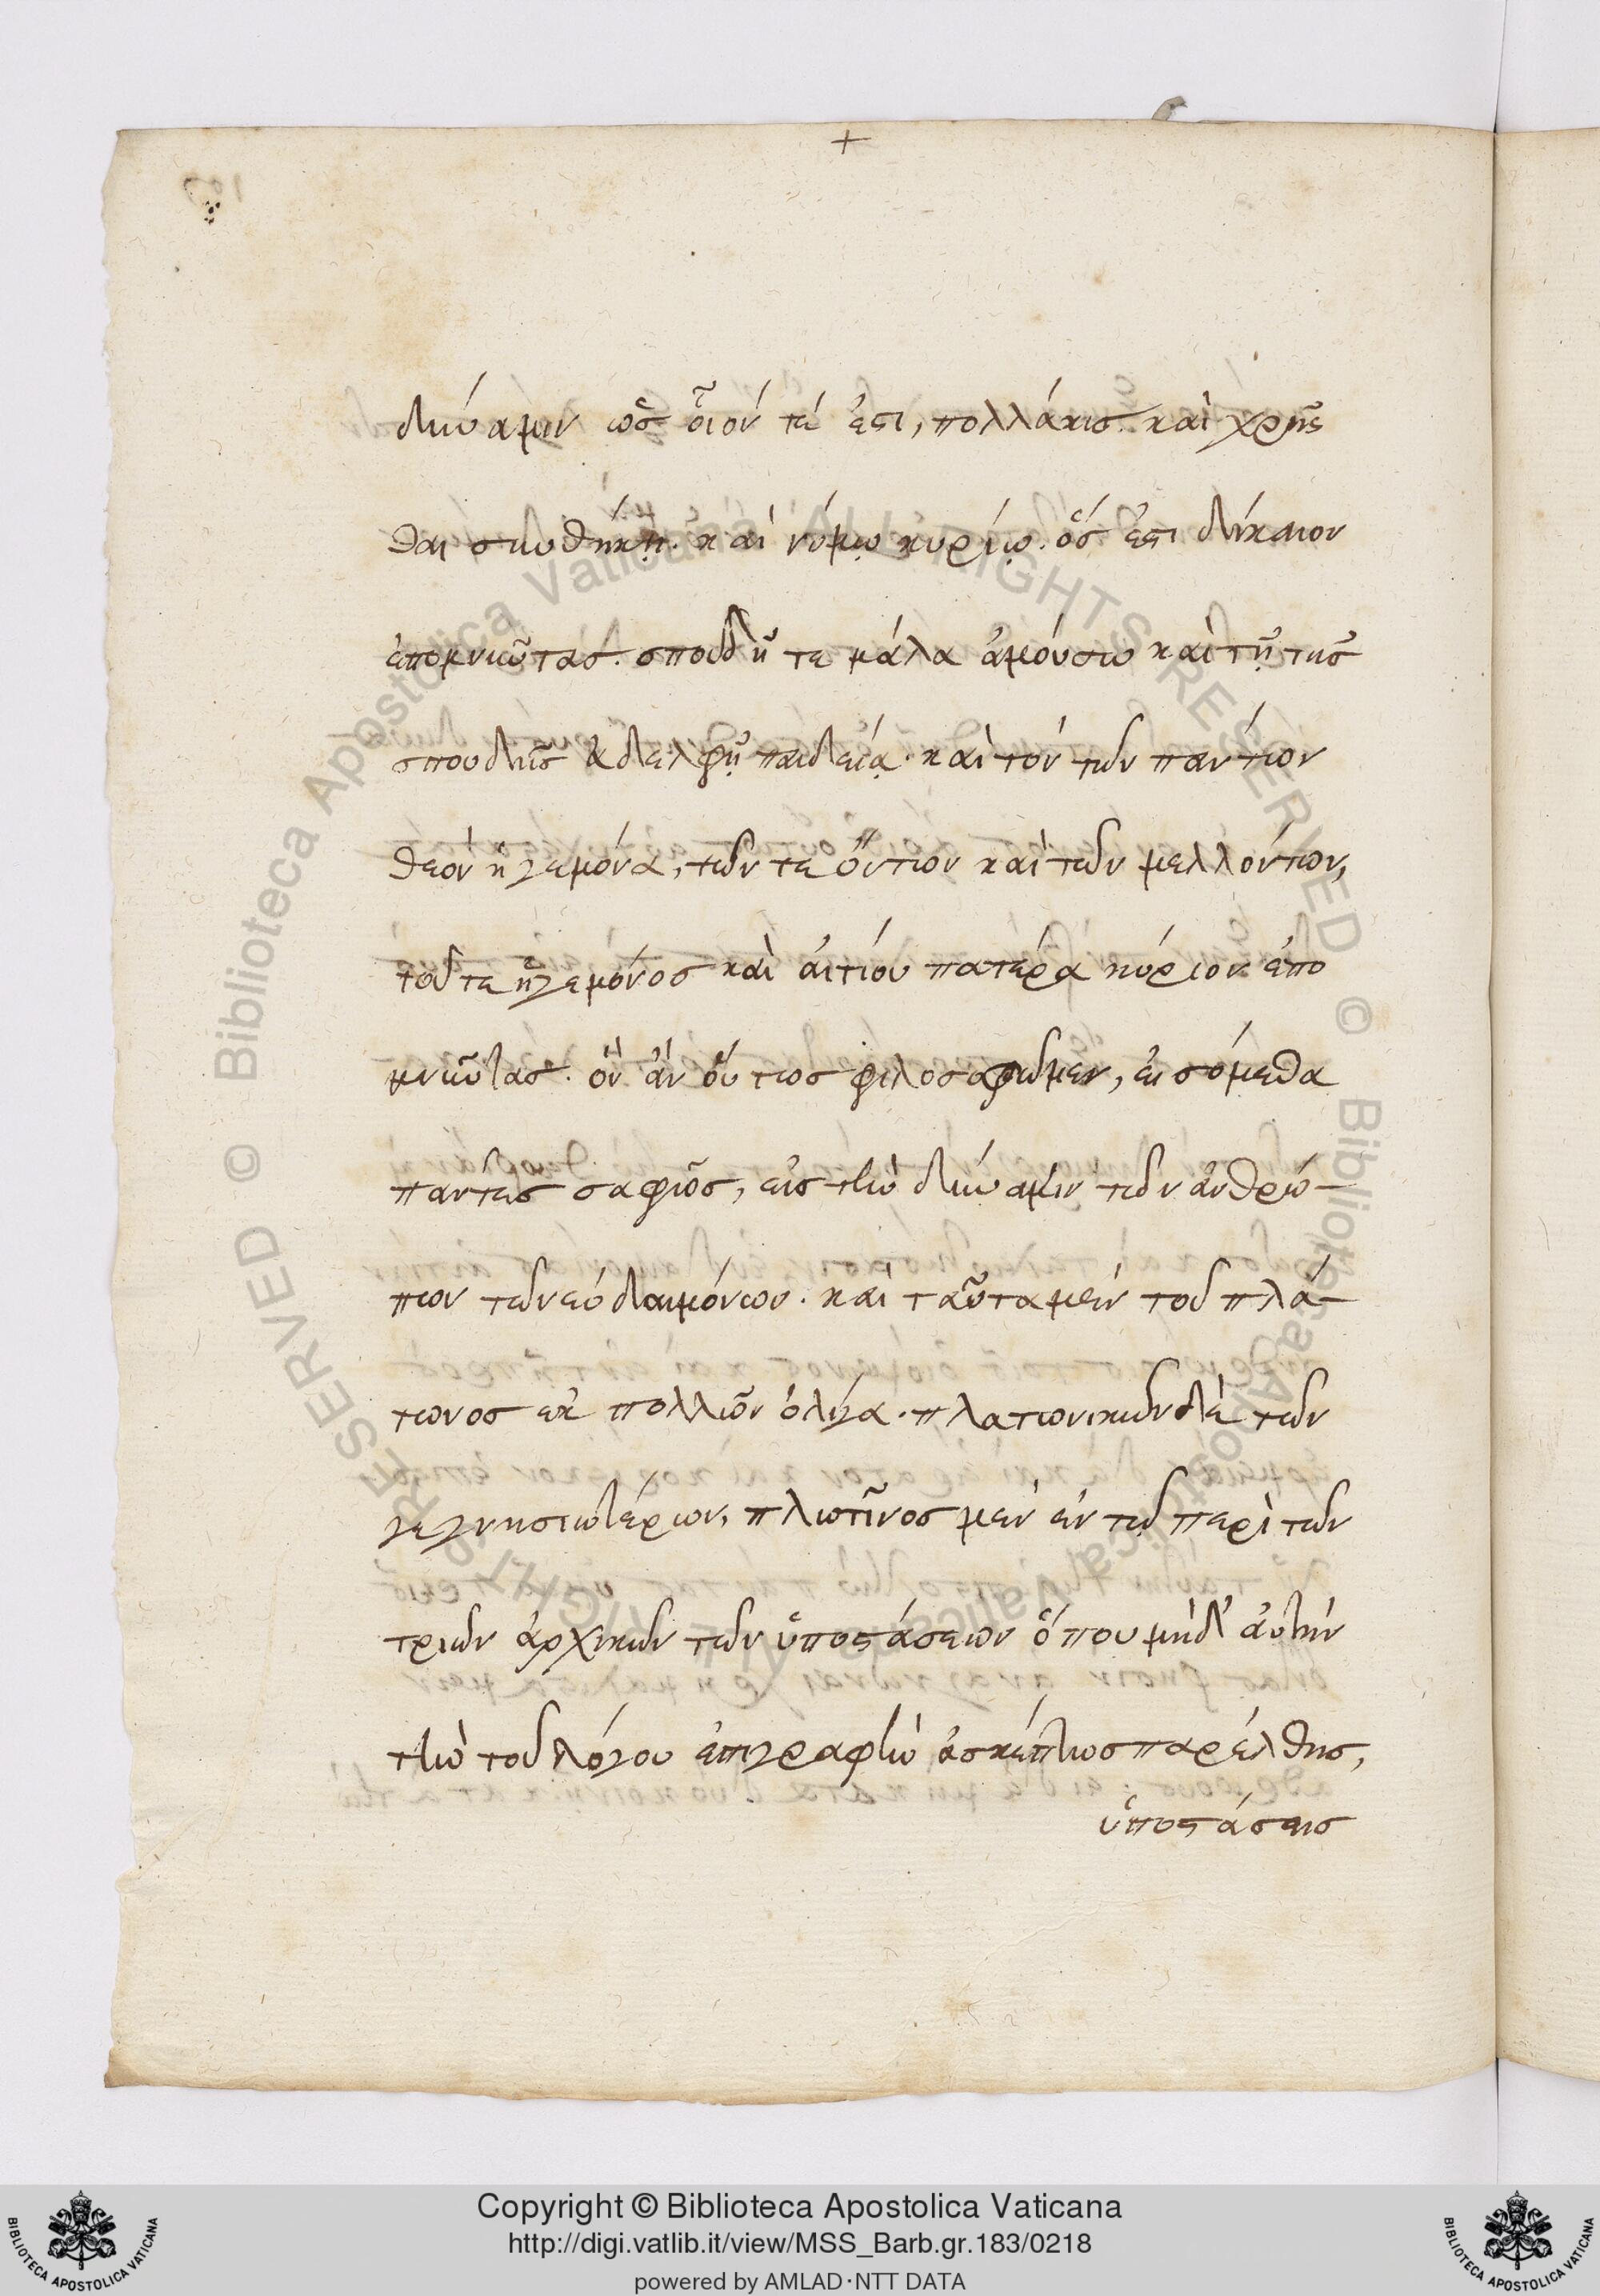 +
δύναμιν ὡς οἷόν τέ ἐστι, πολλάκις. καὶ χρῆσ
θαι συνθήκῃ. καὶ νόμῳ κυρίῳ. ὅς ἐστι δίκαιον
ἐπομνιῶτας. σπουδῇ τε μάλα ἀμούσω καὶ τῇ τῆς
σπουδῆς ἀδελφῇ παιδείᾳ. καὶ τὸν τῶν πάντων
θεὸν ἡγεμόνα, τῶν τε ὄντων καὶ τῶν μελλόντων,
τοῦ τε ἡγεμόνος καὶ αἰτίου πατέρα κύριον ἐπο
μνιῶτας. ὃν ἂν ὄντως φιλοσοφῶμεν, εἰσόμεθα
πάντες σαφῶς, εἰς τὴν δύναμιν τῶν ἀνθρώ-
πων τῶν εὐδαιμόνων. καὶ ταῦτα μὲν τοῦ πλά-
τωνος ἐκ πολλῶν ὀλίγα. πλατωνικῶν δὲ τῶν
γεγνησιωτέρων, πλωτῖνος μὲν ἐν τῷ περὶ τῶν
τριῶν ἀρχικῶν τῶν ὑποστάσεων ὅπου μηδ' αὐτὴν
τὴν τοῦ λόγου ἐπιγραφὴν ἀσκέπτως παρέλθῃς,
ὑποστάσεις
Copyright © Biblioteca Apostolica Vaticana
http://digi.vatlib.it/view/MSS_Barb.gr.183/0218
powered by AMLAD·NTT DATA
BIBLIOTECA APOSTOLICA VATICANA
BIBLIOTECA APOSTOLICA VATICANA
© Biblioteca Apostolica Vaticana ALL RIGHTS RESERVED © Biblioteca Apostolica Vaticana ALL RIGHTS RESERVED